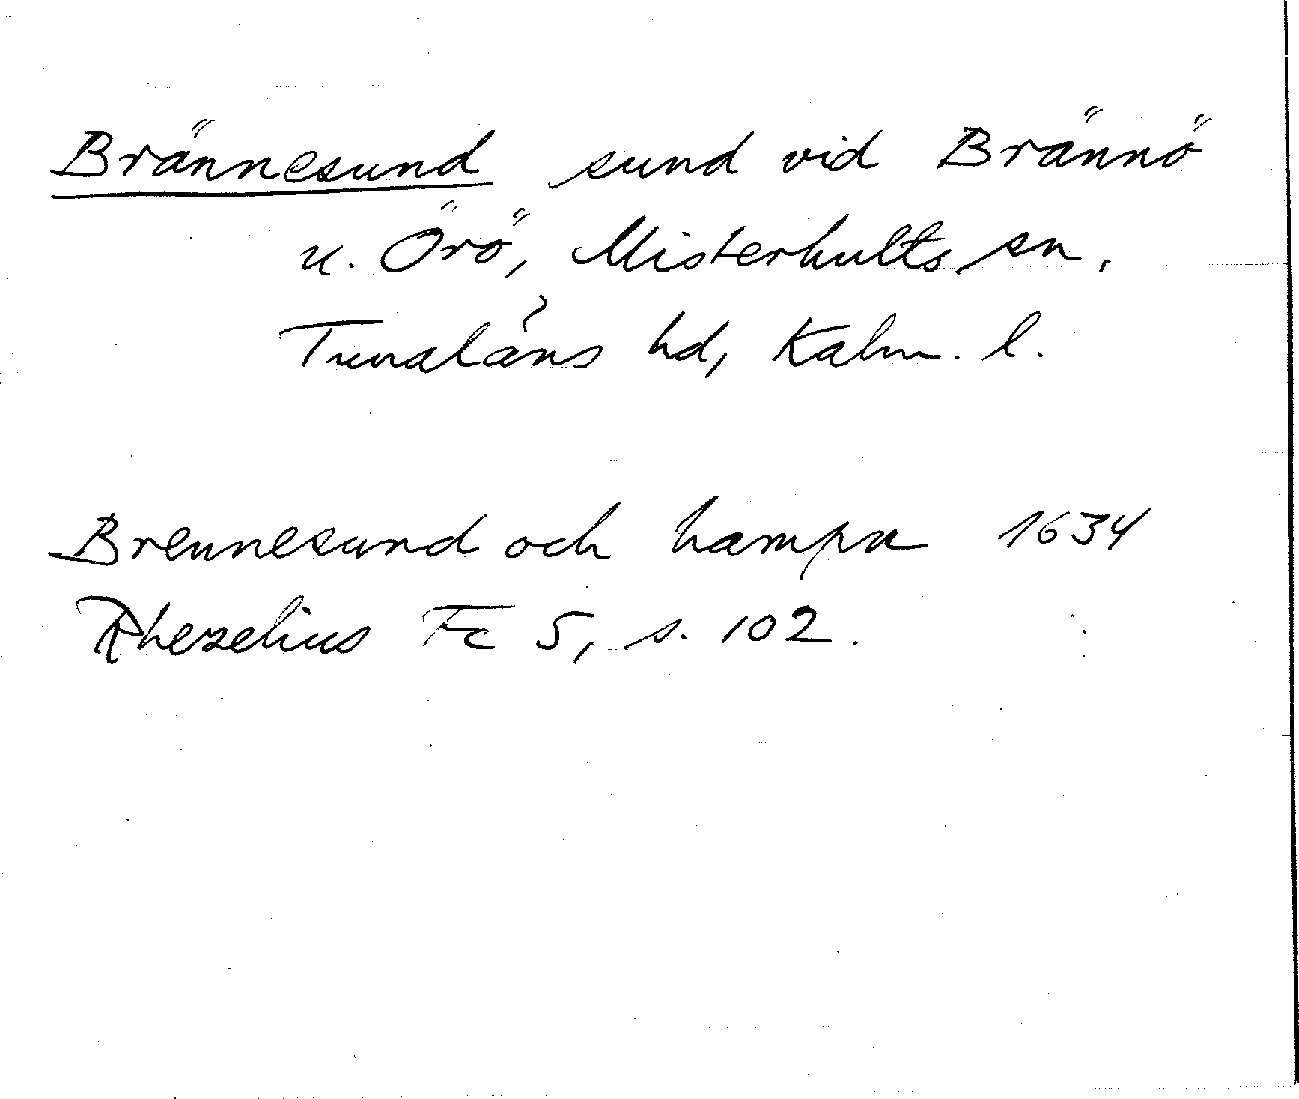 Brännesund sund vid Brännö
u. Örö, Misterhults sn.
Tunaläns hd, Kalm. l.
Brennesund och hampn 1634
Rhezelius Fc 5, s. 102.